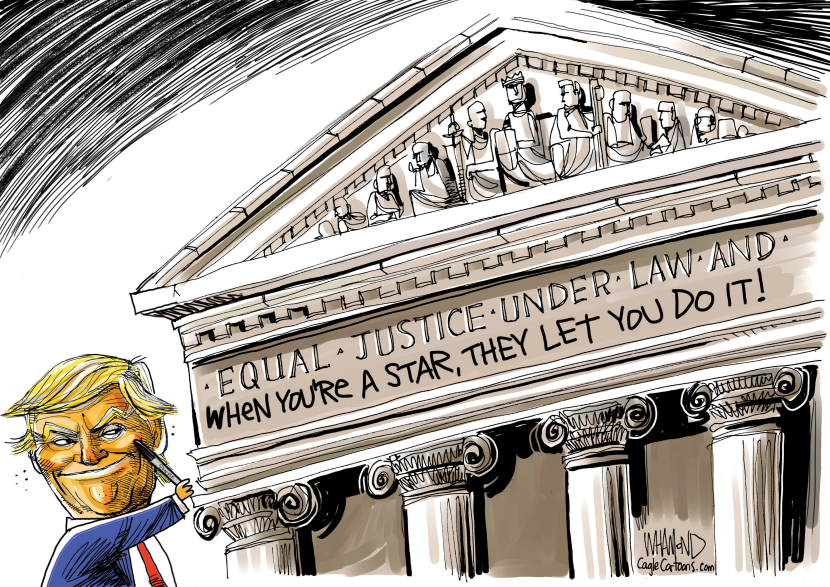 ·EQUAL·JUSTICE·UNDER·LAW·AND·
WHEN YOU'Re A STAR, THEY LET YOU DO IT!
WHAMOND
CagleCartoons.com